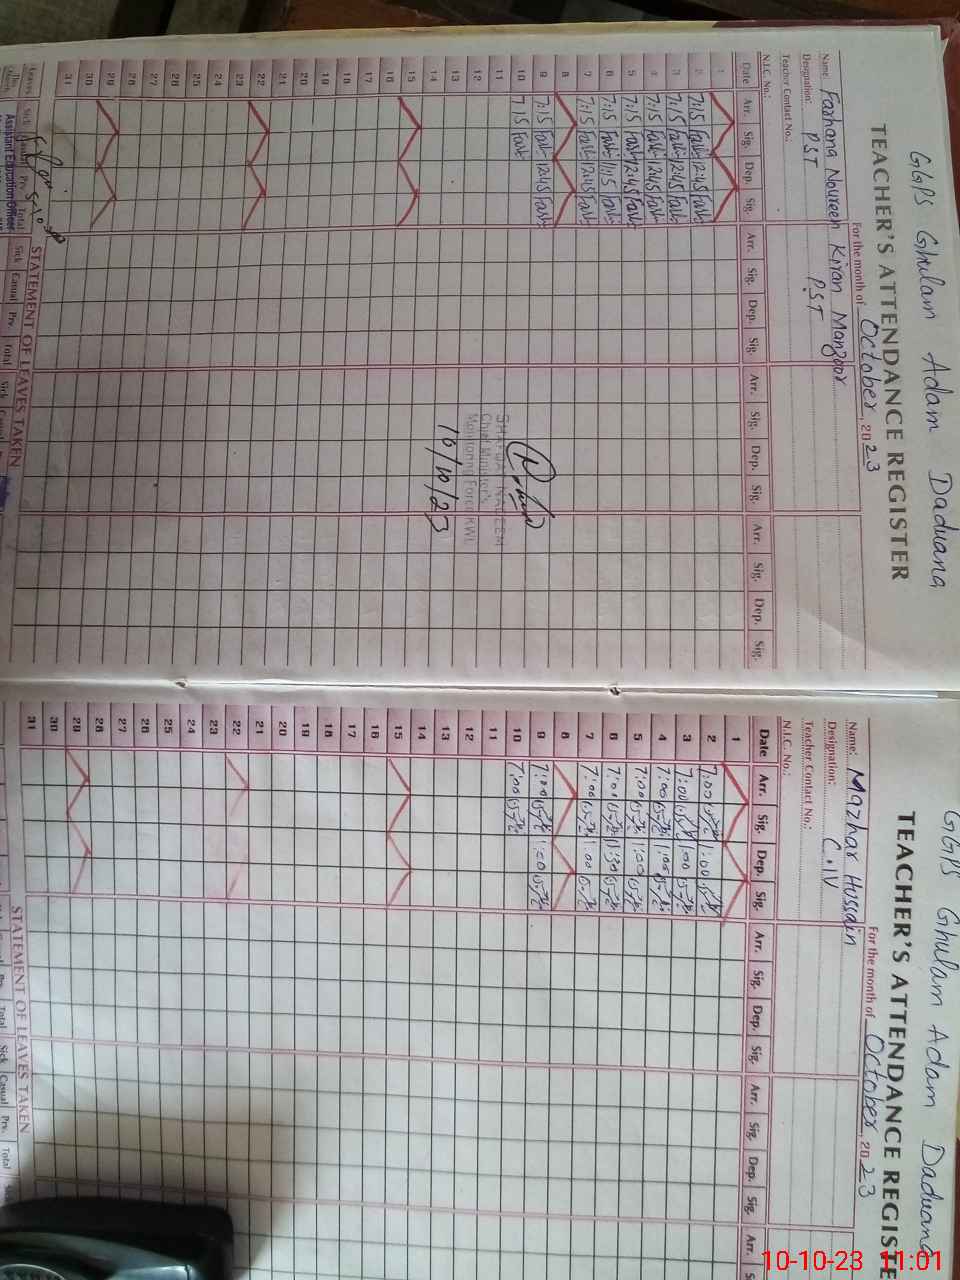 GGPS Ghulam Adam Daduana
TEACHER'S ATTENDANCE REGISTER
For the month of October, 2023
Name: Farhana Noureen Kiran Manzoor
Designation: PST PST
Teacher Contact No.:
N.I.C. No.:
Date Arr. Sig. Dep. Sig. Arr. Sig. Dep. Sig. Arr. Sig. Dep. Sig. Arr. Sig. Dep. Sig.
1
2 7:15 12:45
3 7:15 12:45
4 7:15 12:45
5 7:15 12:45
6 7:15 11:15
7 7:15 12:45
8
9 7:15 12:45
10 7:15
11
12
13
14
15
16
17
18
19
20
21
22
23
24
25
26
27
28
29
30
31
NADEEM
Chief Minister's
Monitoring Force KWL
10/10/23
STATEMENT OF LEAVES TAKEN
Leaves Sick Casual Prv. Total Sick Casual Prv. Total Sick
Assistant Education Officer
GGPS Ghulam Adam Daduana
TEACHER'S ATTENDANCE REGISTE
For the month of October, 2023
Name: Mazhar Hussain
Designation: C.IV
Teacher Contact No.:
N.I.C. No.:
Date Arr. Sig. Dep. Sig. Arr. Sig. Dep. Sig. Arr. Sig. Dep. Sig. Arr.
1
2 7:00 1:00
3 7:00 1:00
4 7:00 1:00
5 7:00 1:00
6 7:00 11:30
7 7:00 1:00
8
9 7:00 1:00
10 7:00
11
12
13
14
15
16
17
18
19
20
21
22
23
24
25
26
27
28
29
30
31
STATEMENT OF LEAVES TAKEN
Total Sick Casual Prv. Total
10-10-23 11:01